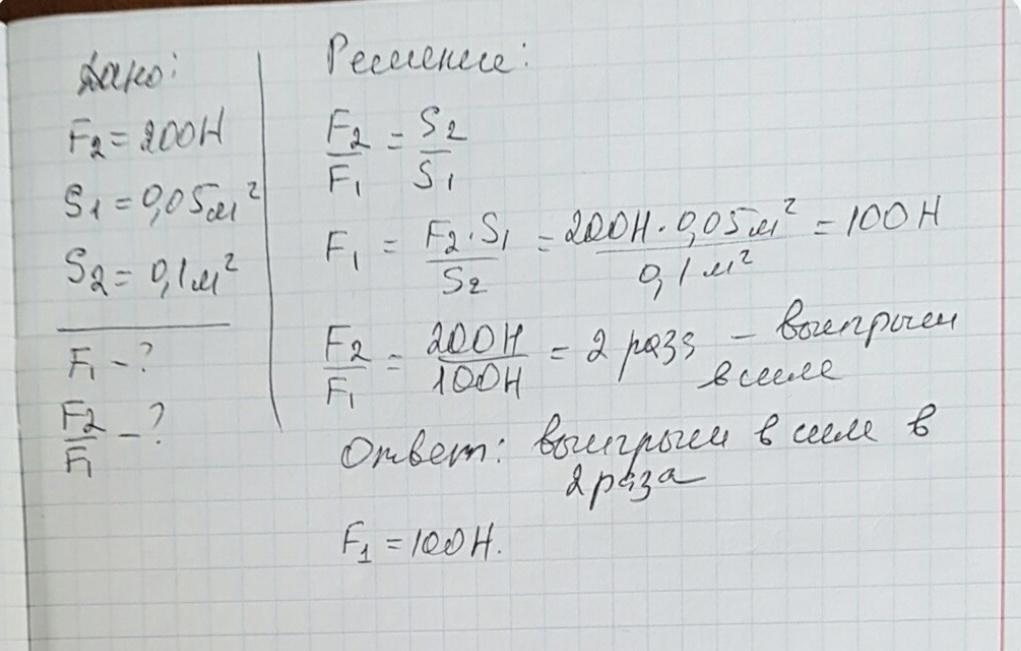 Дано:
F₂ = 200Н
S₁ = 0,05м²
S₂ = 0,1м²
F₁ - ?
F₂/F₁ - ?
Решение:
F₂/F₁ = S₂/S₁
F₁ = F₂·S₁/S₂ = 200Н · 0,05м²/0,1м² = 100Н
F₂/F₁ = 200Н/100Н = 2 раза – выигрыш
в силе
Ответ: выигрыш в силе в
2 раза
F₁ = 100Н.